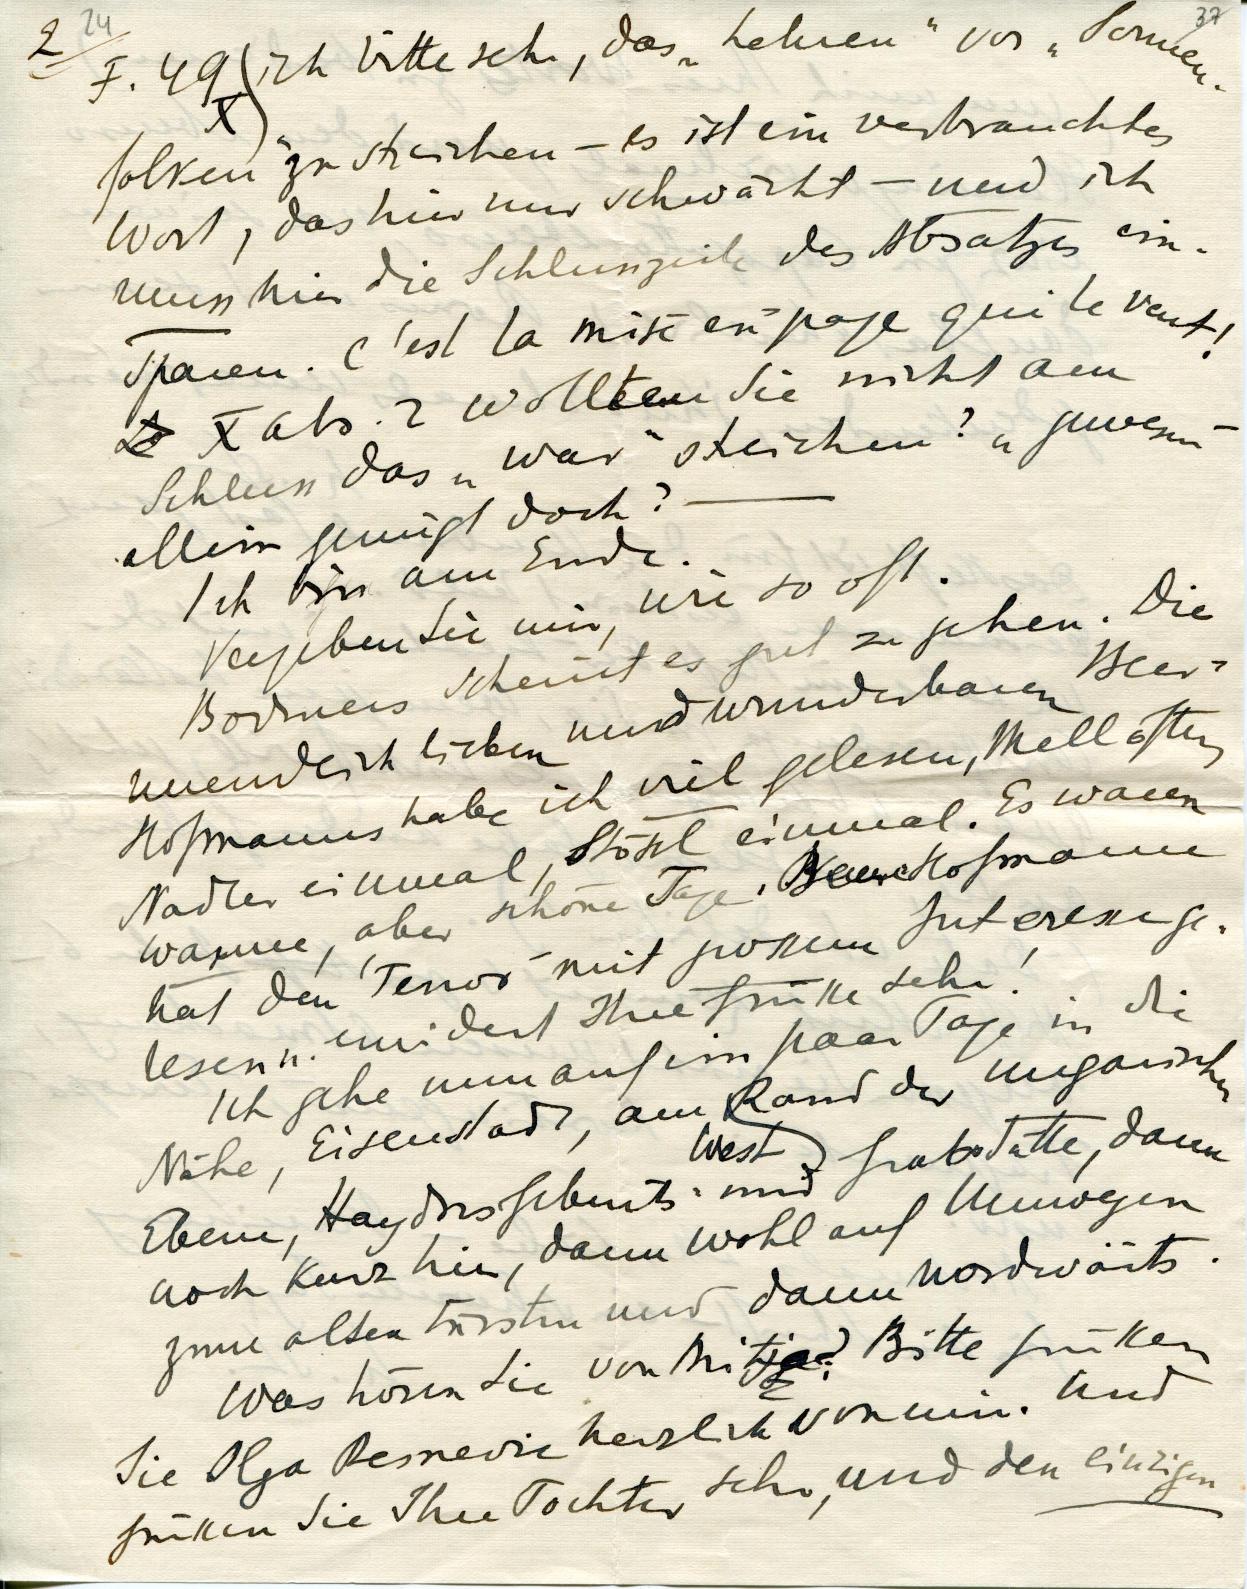 2 24 37
F. 49) ich bitte sehr, das „hehren" vor „Sonnen-
X
folken" zu streichen – es ist ein verbrauchtes
Wort, das hier nur schwächt – und ich
muss hier die Schlusszeile des Absatzes ein-
sparen. C'est la mise en page qui le veut!
X abs. 2 wollten Sie nicht am
Schluss das „war" streichen? „gewesen"
allein genügt doch? —
Ich bin am Ende.
Vergeben Sie mir, wie so oft.
Bodmers scheint es gut zu gehen. Die
unendlich lieben und wunderbaren Beer-
Hofmanns habe ich viel gesehen, Mell öfters,
Nadler einmal, Stössl einmal. Es waren
warme, aber schöne Tage. Beer-Hofmann
hat den "Terror" mit grossem Interesse ge-
lesen u. erwidert Ihre Grüsse sehr!
Ich gehe nun auf ein paar Tage in die
Nähe, Eisenstadt, am Rand der ungarischen
West
Ebene, Haydns Geburts- und Grabstätte, dann
noch kurz hier, dann wohl auf Umwegen
zum alten Fürsten und dann nordwärts.
Was hören Sie von Mitja? Bitte grüssen
Sie Olga Resnevic herzlich von mir. Und
grüssen Sie Ihre Tochter sehr, und den einzigen